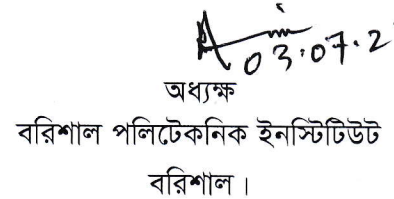 03.07.2
অধ্যক্ষ
বরিশাল পলিটেকনিক ইনস্টিটিউট
বরিশাল।